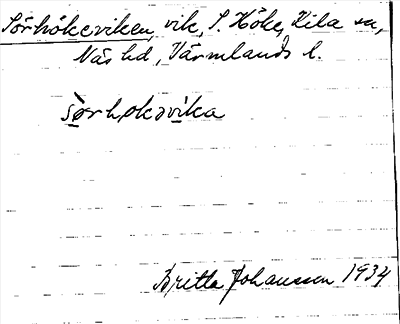 Sörhökeviken, vik, S. Höke, Kila sn,
Näs hd, Värmlands l.
sø̀rhøkəvika
Britta Johansson 1934